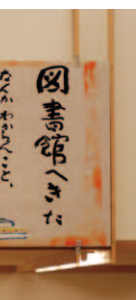 図書館へきた
なんか わからんこと、